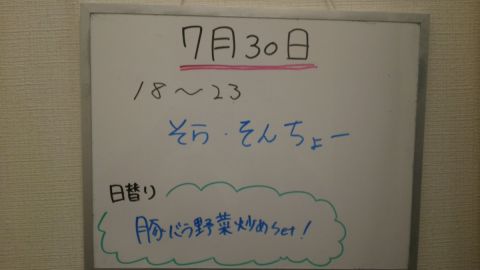 7月30日
18～23
そら・そんちょー
日替り
豚バラ野菜炒めset!